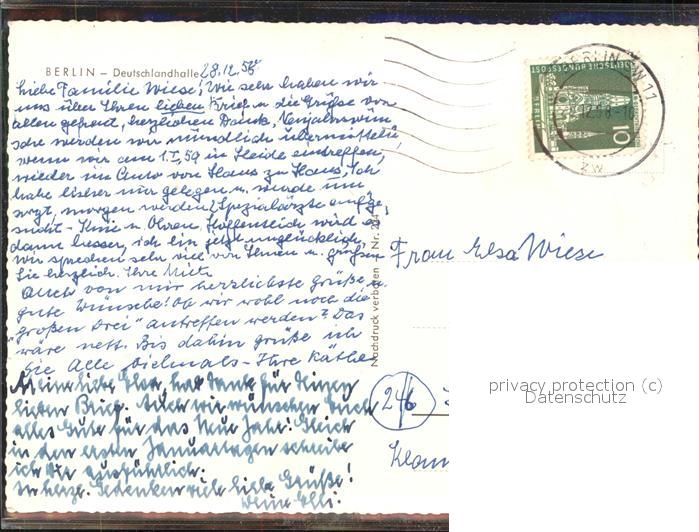 BERLIN – Deutschlandhalle 28.12.58
Liebe Familie Wiese! Wie sehr haben wir
uns über Ihren lieben Brief u. die Grüße von
allen gefreut, herzlichen Dank, Neujahrswün
sche werden wir mündlich übermitteln
wenn wir am 1.I.59 in Heide eintreffen,
wieder im Auto von Haus zu Haus, Ich
habe bisher nur gelegen u. wurde um
sorgt, morgen werden 2 Spezialärzte aufge
sucht - Knie u. Ohren, Hoffentlich wird es
dann besser, ich bin jetzt unglücklich,
wir sprechen sehr viel von Ihnen u. grüßen
Sie herzlich. Ihre
Auch von mir herzlichste Grüße u.
gute Wünsche! Ob wir wohl noch die
"großen Drei" antreffen werden? Das
wäre nett. Bis dahin grüße ich
Sie Alle vielmals - Ihre Käthe
Meine liebe Elsa, hab Dank für Deinen
lieben Brief. Auch wir wünschen Euch
alles Gute für das Neue Jahr! Gleich
in den ersten Januartagen schreibe
ich Dir ausführlich.
In herzl. Gedenken viele liebe Grüße!
Deine Elli.
Nachdruck verboten
Nr. 214
DEUTSCHE BUNDESPOST
BERLIN
10
BERLIN SW 11
12.58.-18
zw
Frau Elsa Wiese
(24b)
Klau
privacy protection (c)
Datenschutz